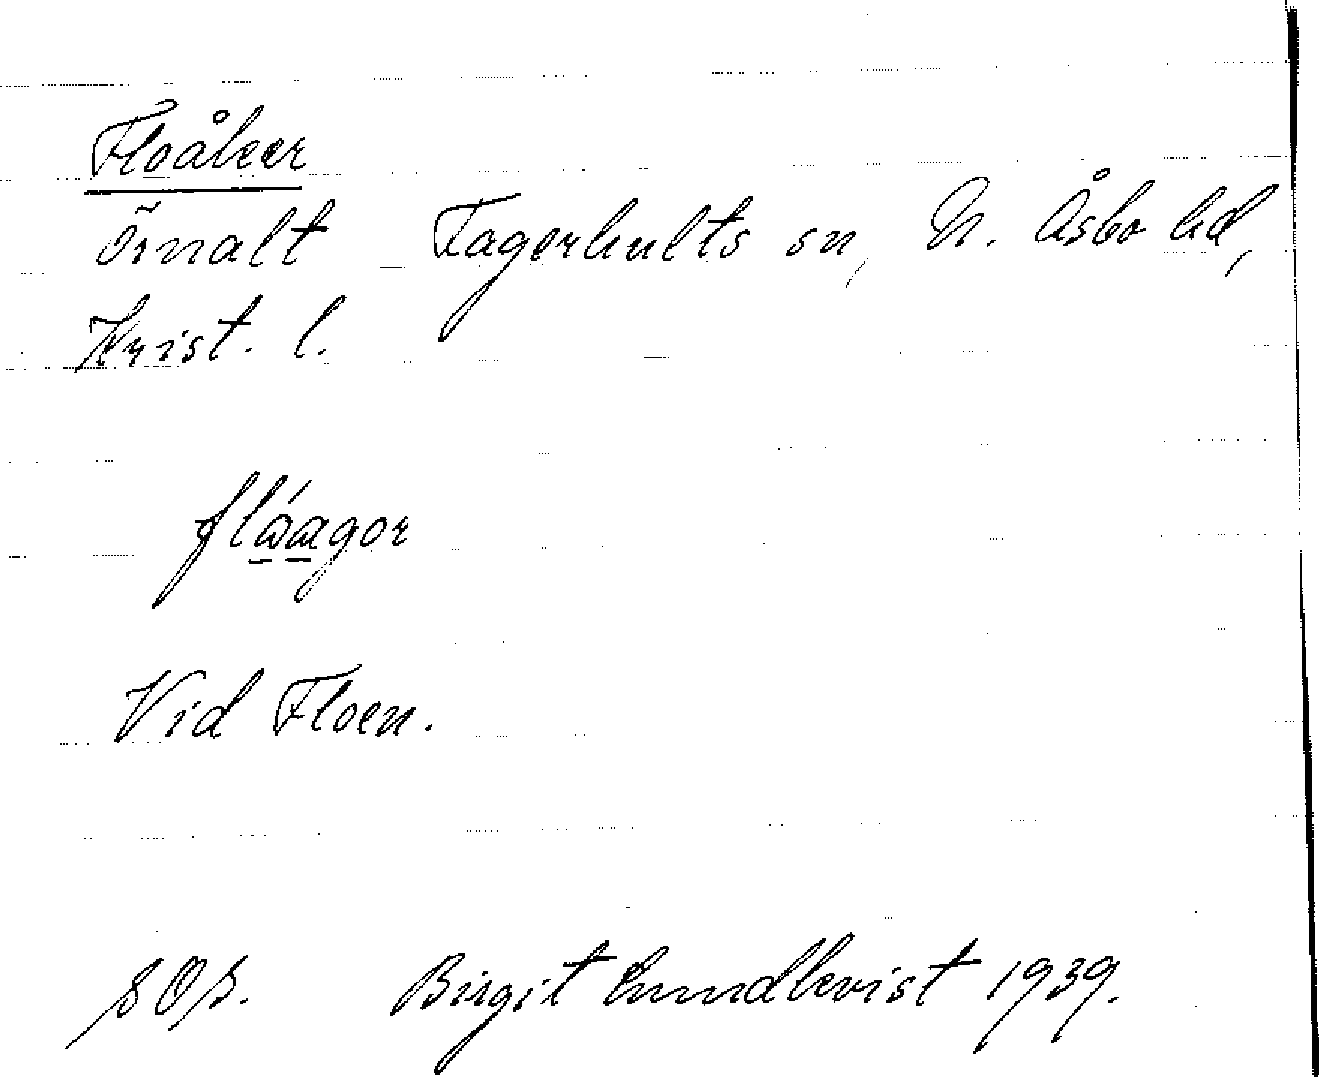 Floåker
Örnalt Fagerhults sn, N. Åsbo hd,
Krist. l.
flåagor
Vid Floen.
Birgit Lundkvist 1939.